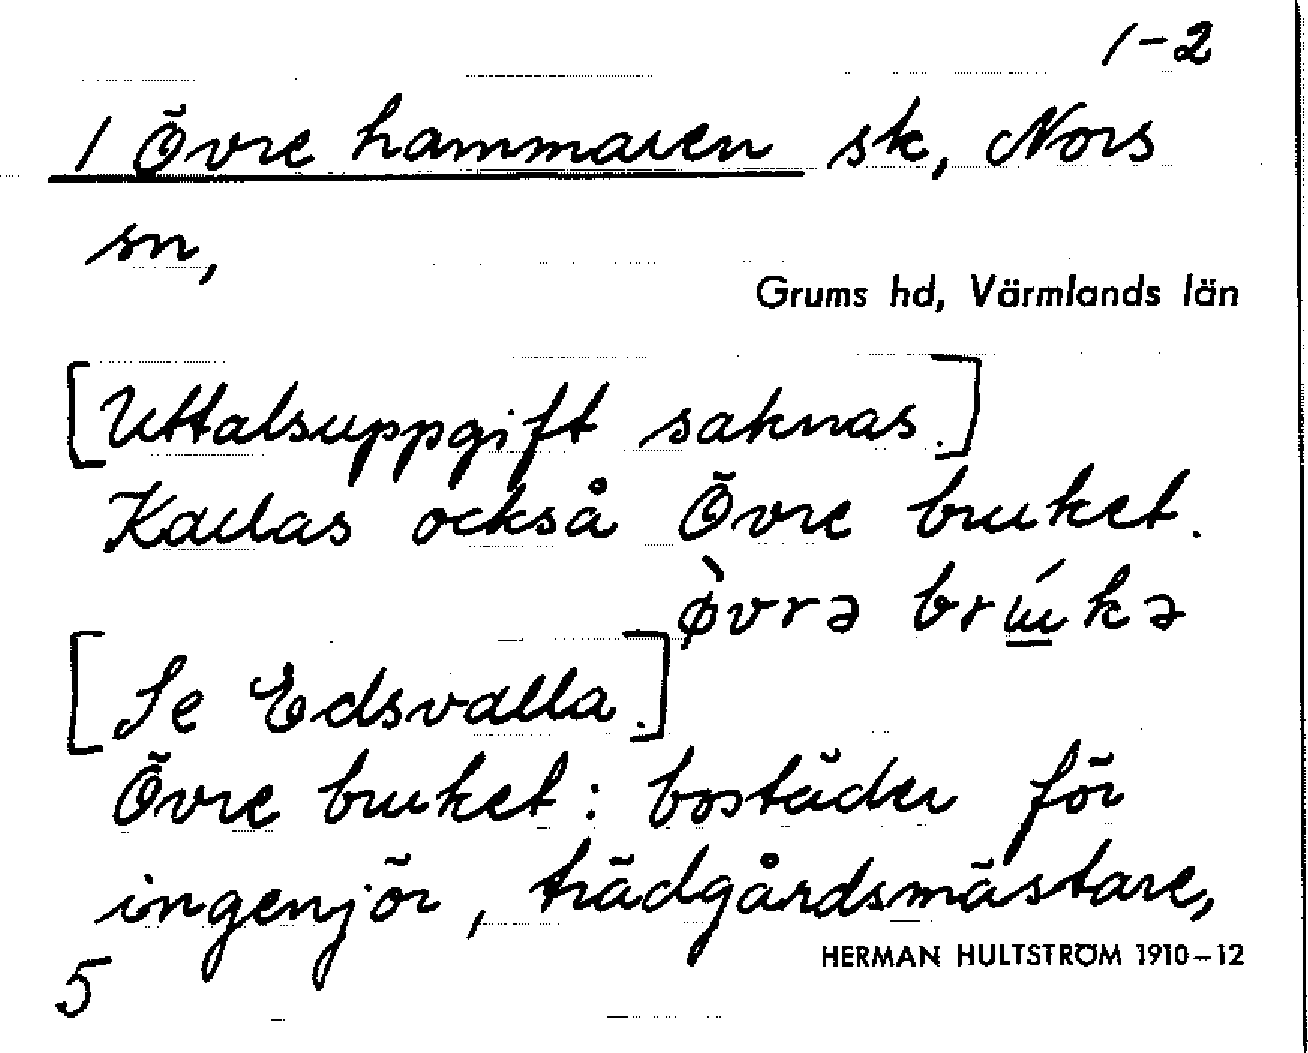 1-2
1 Övre hammaren sk, Nors
sn,
Grums hd, Värmlands län
[Uttalsuppgift saknas.]
Kallas också Övre bruket.
ø̀vrə brúkə
[Se Edsvalla.]
Övre bruket: bostäder för
ingenjör, trädgårdsmästare,
HERMAN HULTSTRÖM 1910-12
5